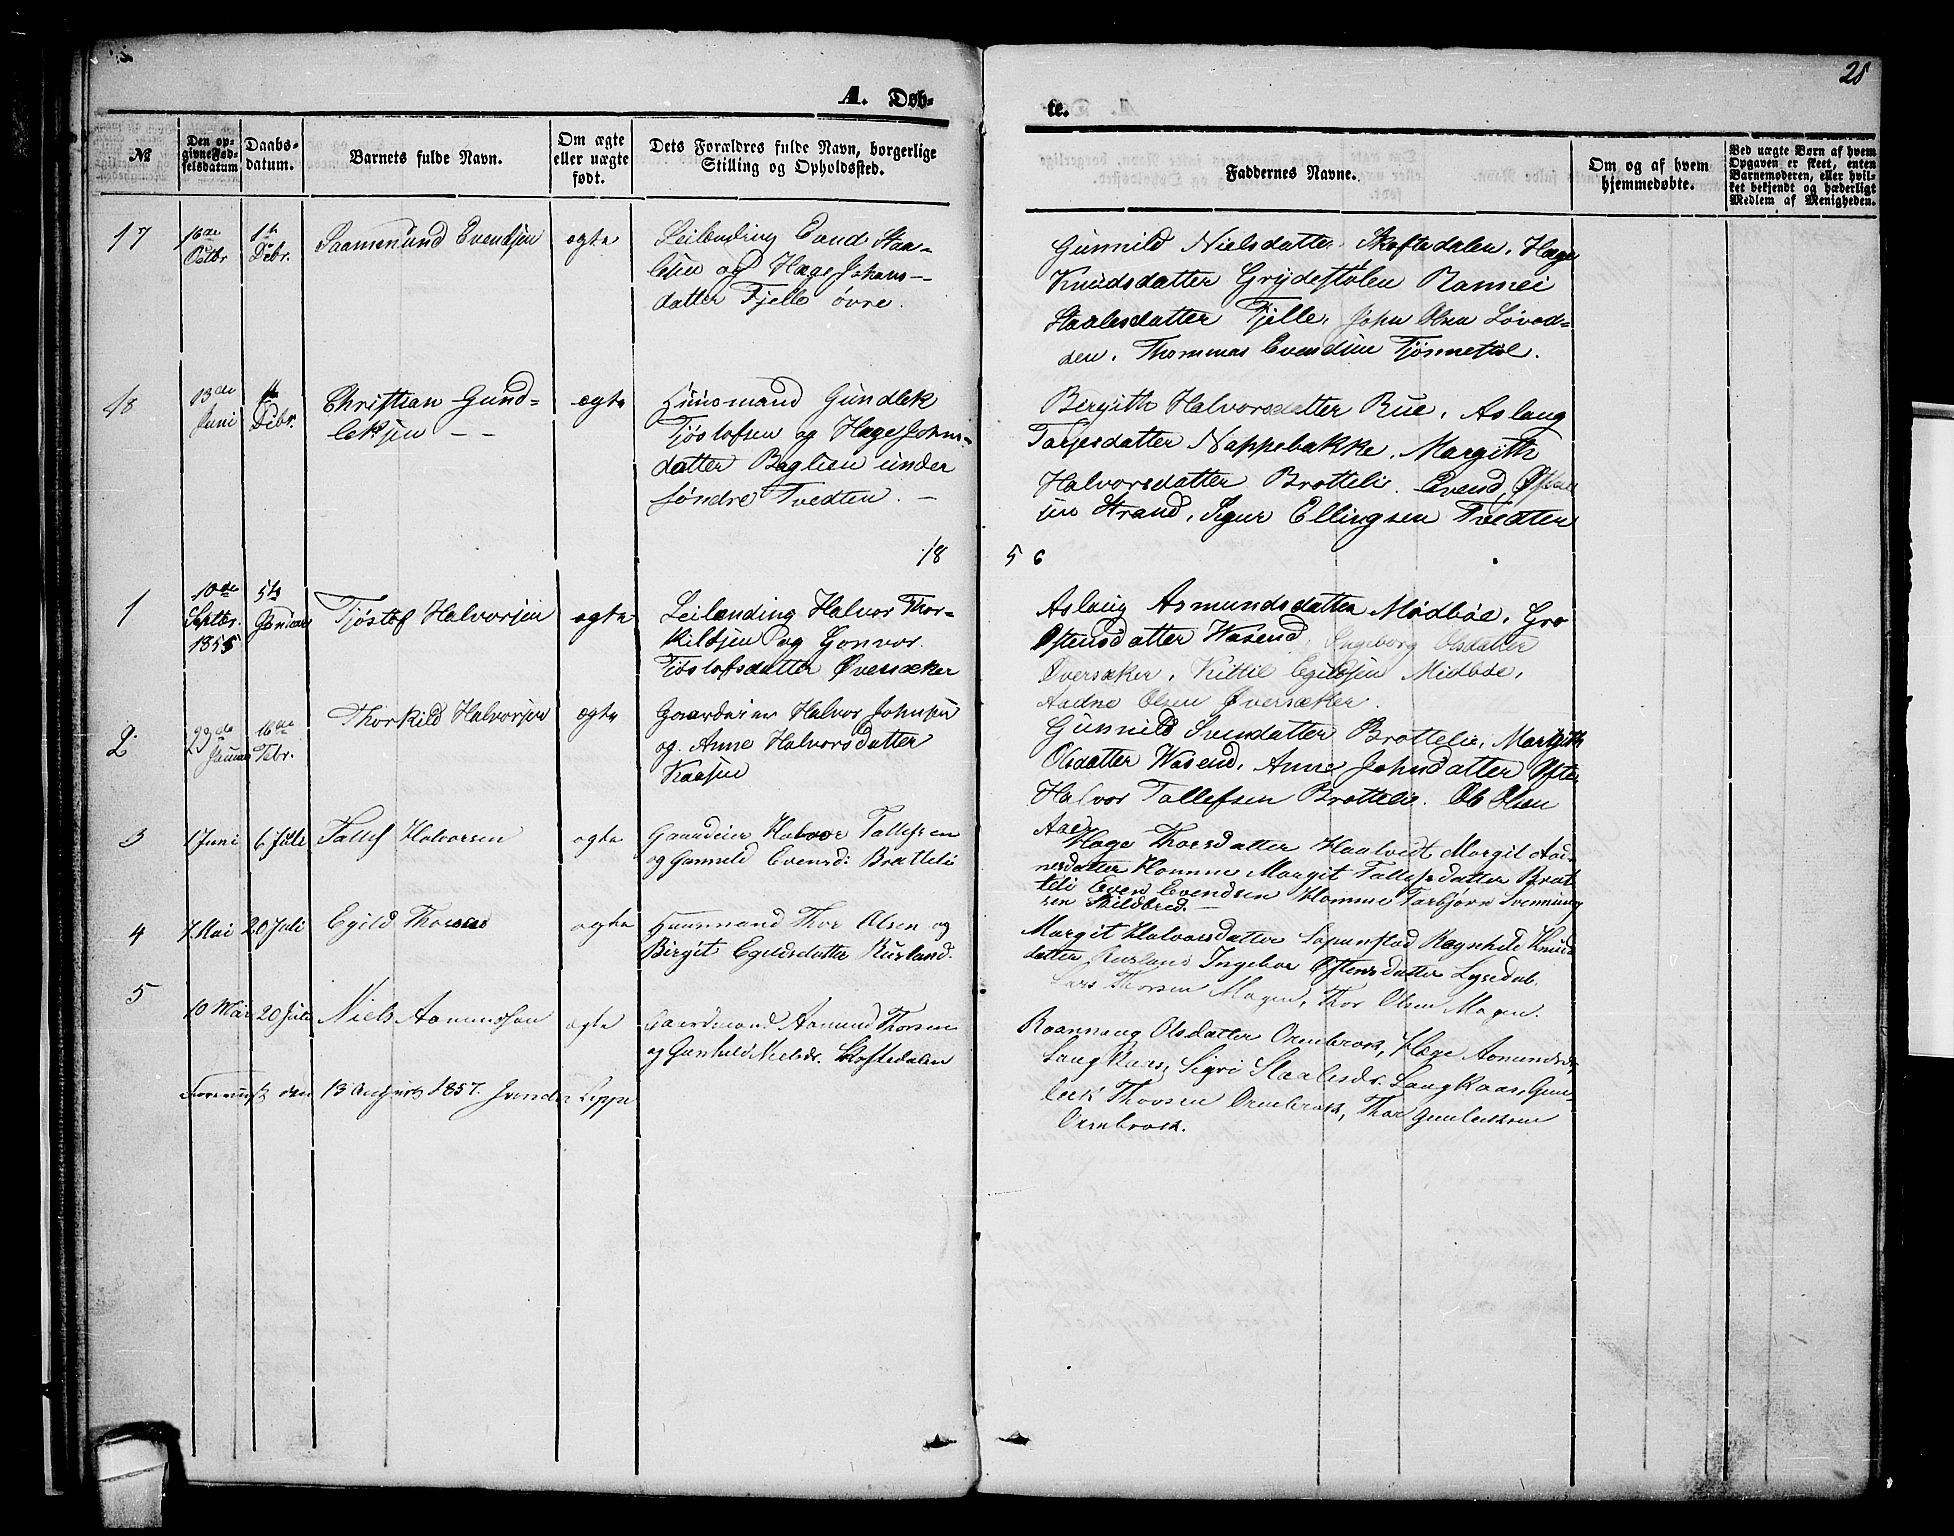 28
A. Døb-
te.
№
Den op-
givne Fød-
selsdatum
Daabs-
datum.
Barnets fulde Navn.
Om ægte
eller uægte
født.
Dets Forældres fulde Navn, borgerlige
Stilling og Opholdssted.
Faddernes Navne.
Om og af hvem
hjemmedøbte.
Ved uægte Børn af hvem
Opgaven er skeet, enten
Barnemoderen, eller hvil-
ket bekjendt og hæderligt
Medlem af Menigheden.
17
16de
Octbr
1ste
Debr.
Saamund Evendsen
ægte
Leilending Evend Staa-
lesen og Hæge Johans-
datter Fjelle øvre.
Gunnild Nielsdatter Skoftedalen, Hæge
Knudsdatter Grydestølen Rannei
Staalesdatter Fjelle, John Olsen Løvaas-
sen, Thommas Evendsen Tjønnefoel.
18
13de
Juni
Debr.
Christian Gund-
leksen - -
ægte
Huusmand Gundlek
Tjøstofsen og Hæge Johns-
datter Baglien under
søndre Tvedten. -
Birgith Halvorsdatter Rue, Aslaug
Tarjesdatter Nappebakke, Margith
Halvorsdatter Brotteli. Evend
sen Strand, Sigur Ellingsen Tvedten
18
56
1
10de
Septbr.
1855
5te
Januar
Tjøstof Halvorsen
ægte
Leilænding Halvor Thor-
kildsen og Gonvor
Tjøstofsdatter Øversæker
Aslaug Asmundsdatter Mødbøe, Gro
Østensdatter Wasend. Engeborg Olsdatter
Øversæker, Kittil Egildsen Midbøe,
Aadne Olsen Øversæker.
2
23de
Januar
16de
Febr.
Thorkild Halvorsen
ægte
Gaardeier Halvor Johnsen
og Anne Halvorsdatter
Kaasen
Gunnild Svensdatter Brottelie, Margith
Olsdatter Wasend, Anne Johnsdatter
Halvor Tallefsen Brottelie. Ole Olsen
Aae
3
1 Juni
6 Juli
Tallef Halvorsen
ægte
Gaardeier Halvor Tallefsen
og Gunnild Evensd: Bratteli
Hæge Thorsdatter Haatvedt Margit Aad-
nesdatter Homme Margit Tallefsdatter Brat-
teli Even Evendsen Homme Tarbjørn Svennung
sen Skildbred. -
4
7 Mai
20 Juli
Egild Thorsen
ægte
Huusmand Thor Olsen og
Birgit Egildsdatter Rusland.
Margit Halvorsdatter Ragnhild Knuds
datter Rusland Ingebor Østensdatter Lysedal.
Lars Thorsen Mogen, Thor Olsen Mogen.
5
10 Mai
20 Juli
Niels Aamundsen
ægte
Gaardmand Aamund Thorsen
og Gunhild Nielsdr. Skoftedalen
Raannaug Olsdatter Ormbrok, Hæge Aamundsdr
Langkaas, Sigri Staalesdr. Langkaas, Gun-
leck Thorsen Ormbrok, Thor Gunlecksen
Ormbrok.
Foreviist den 13 August 1857.